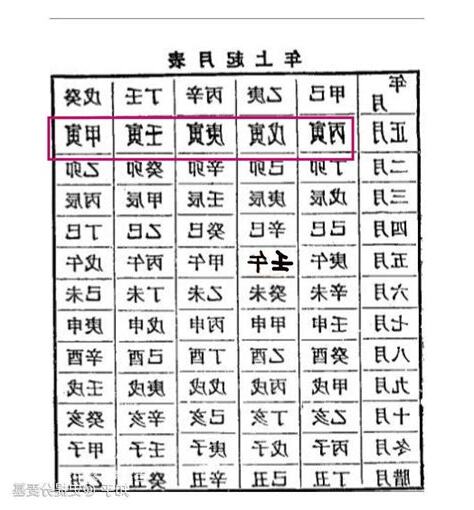 年上起月表
年 月 甲己 乙庚 丙辛 丁壬 戊癸
正月 丙寅 戊寅 庚寅 壬寅 甲寅
二月 丁卯 己卯 辛卯 癸卯 乙卯
三月 戊辰 庚辰 壬辰 甲辰 丙辰
四月 己巳 辛巳 癸巳 乙巳 丁巳
五月 庚午 壬午 甲午 丙午 戊午
六月 辛未 癸未 乙未 丁未 己未
七月 壬申 甲申 丙申 戊申 庚申
八月 癸酉 乙酉 丁酉 己酉 辛酉
九月 甲戌 丙戌 戊戌 庚戌 壬戌
十月 乙亥 丁亥 己亥 辛亥 癸亥
冬月 丙子 戊子 庚子 壬子 甲子
腊月 丁丑 己丑 辛丑 癸丑 乙丑
知乎